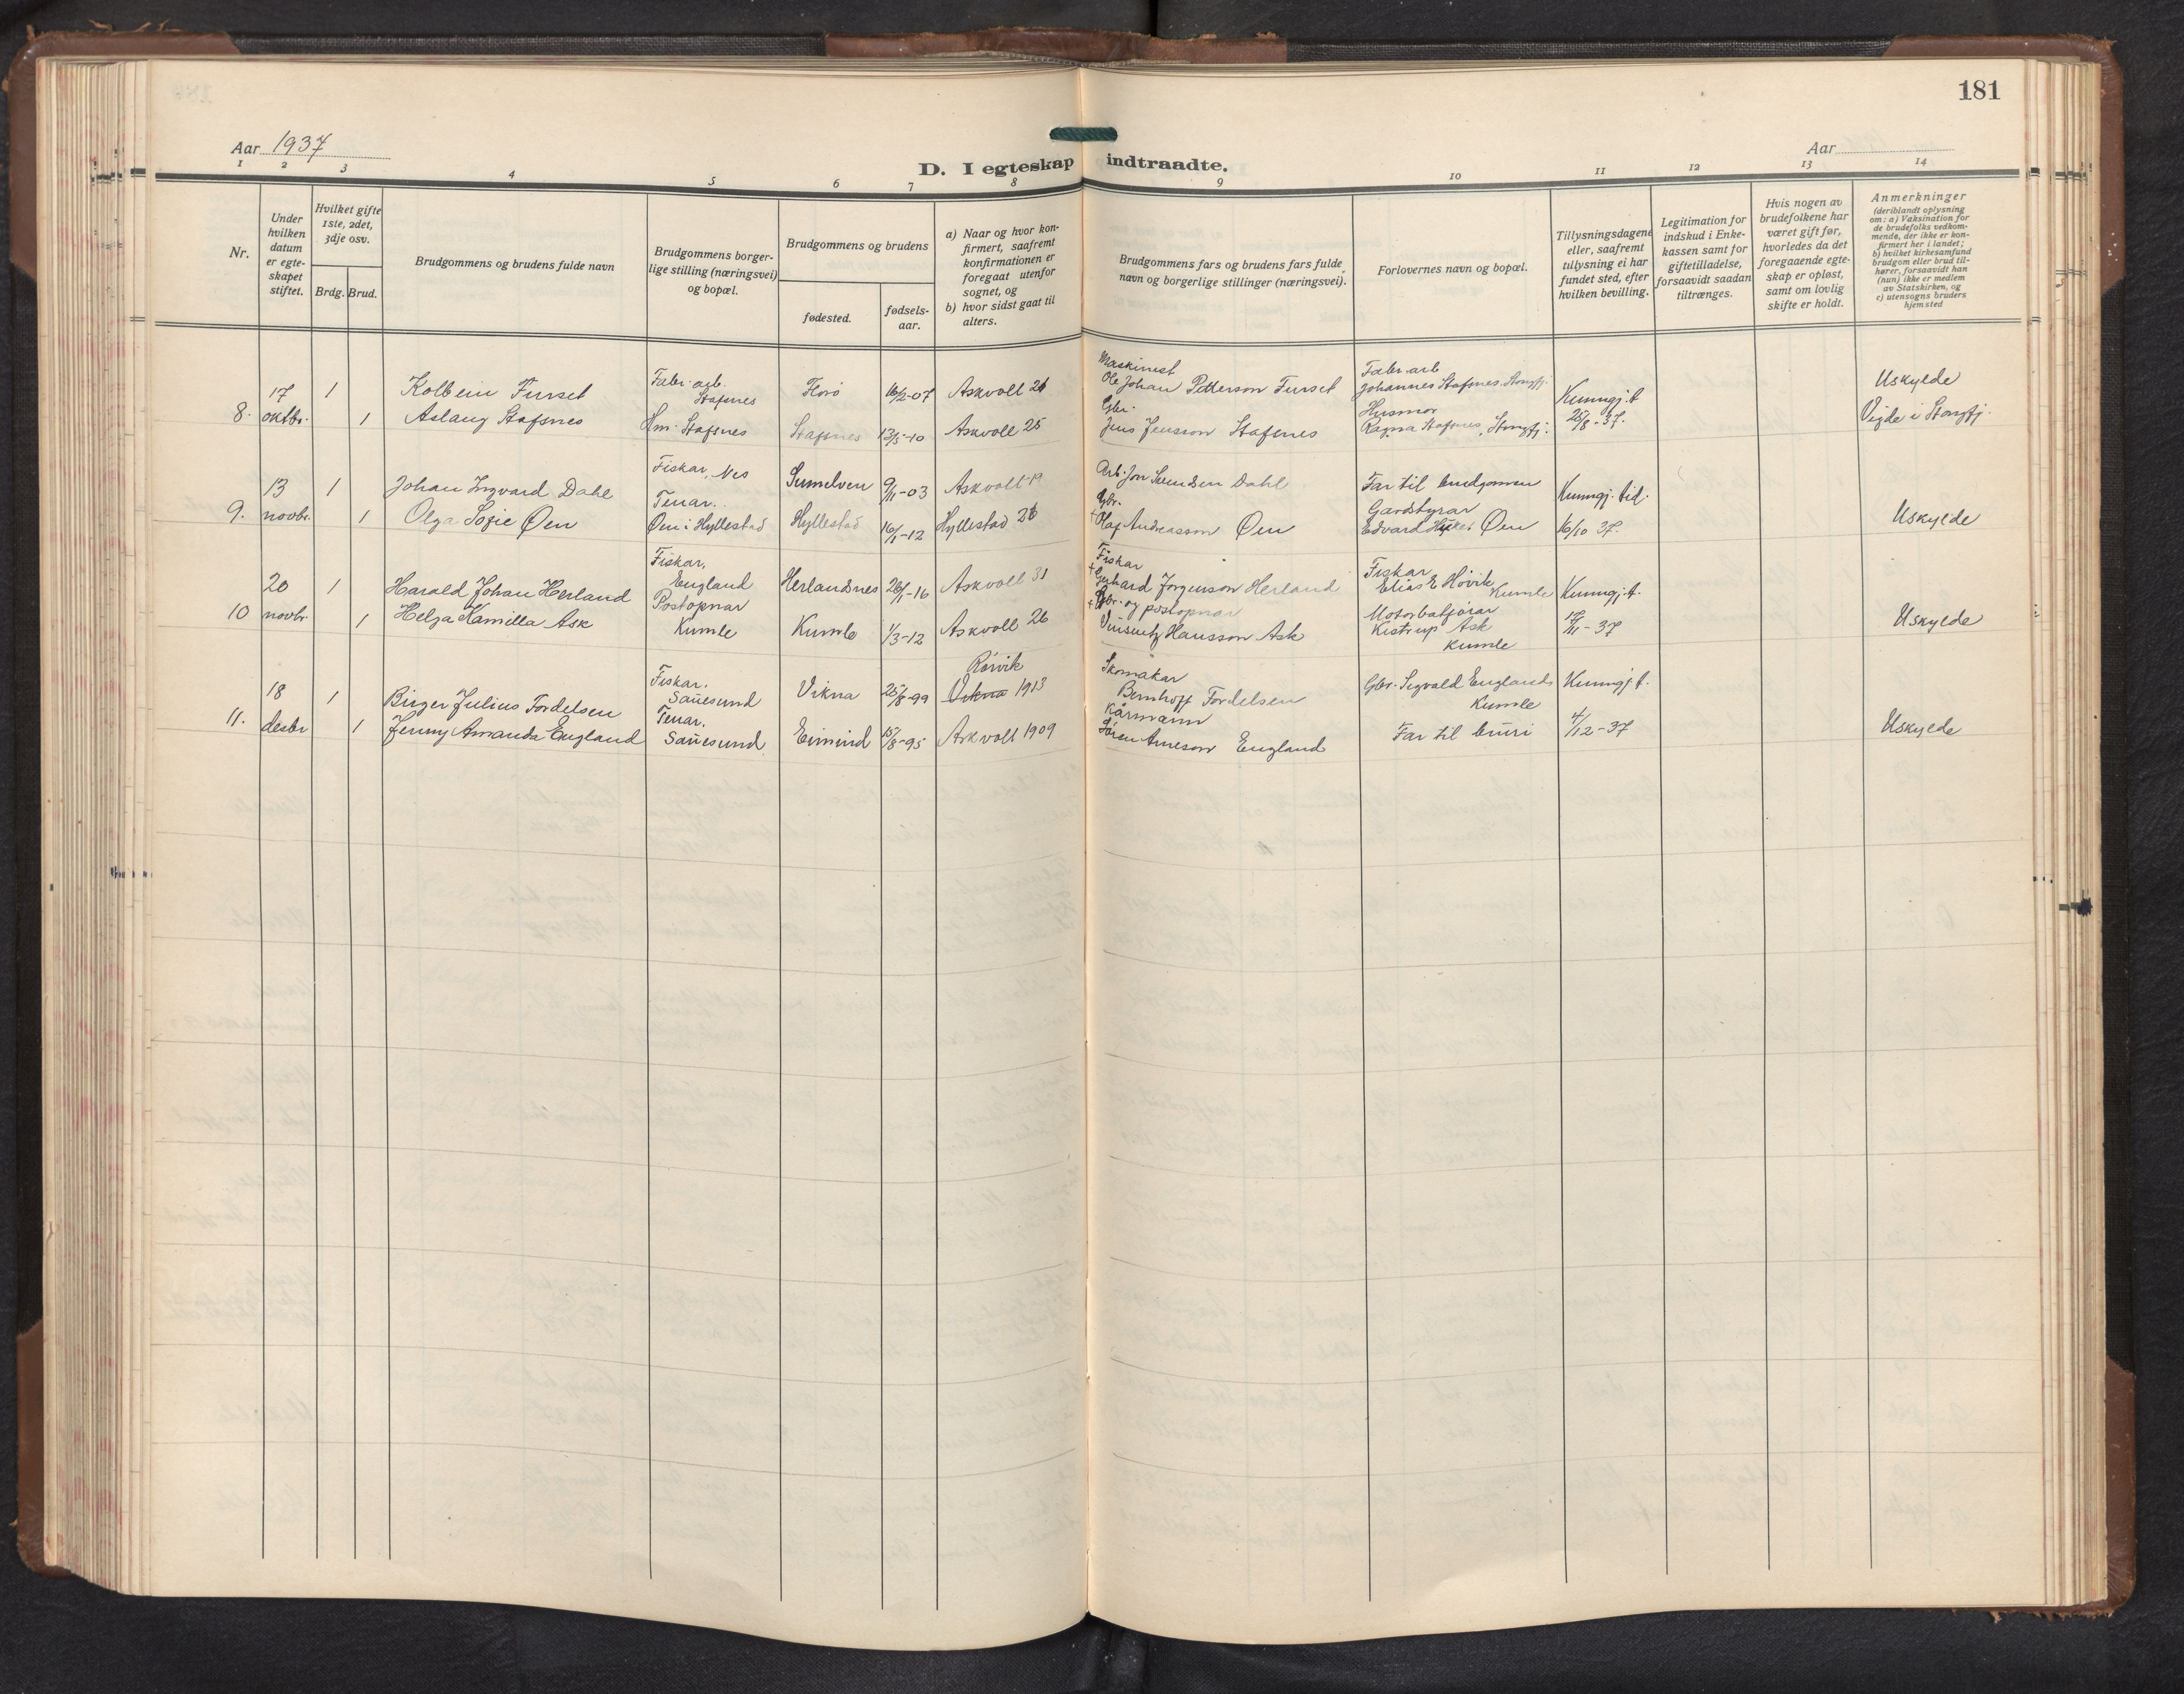 181
Aar 1937
Aar
D. I egteskap indtraadte.
1 2 3 4 5 6 7 8 9 10 11 12 13 14
Nr.
Under hvilken datum er egte-skapet stiftet.
Hvilket gifte 1ste, 2det, 3dje osv.
Brdg. Brud.
Brudgommens og brudens fulde navn
Brudgommens borger-lige stilling (næringsvei) og bopæl.
Brudgommens og brudens
fødested.
fødsels-aar.
a) Naar og hvor kon-firmert, saafremt konfirmationen er foregaat utenfor sognet, og
b) hvor sidst gaat til alters.
Brudgommens fars og brudens fars fulde navn og borgerlige stillinger (næringsvei).
Forlovernes navn og bopæl.
Tillysningsdagene eller, saafremt tillysning ei har fundet sted, efter hvilken bevilling.
Legitimation for indskud i Enke-kassen samt for giftetilladelse, forsaavidt saadan tiltrænges.
Hvis nogen av brudefolkene har været gift før, hvorledes da det foregaaende egte-skap er opløst, samt om lovlig skifte er holdt.
Anmerkninger
(deriblandt oplysning om: a) Vaksination for de brudefolks vedkom-mende, der ikke er kon-firmert her i landet; b) hvilket kirkesamfund brudgom eller brud til-hører, forsaavidt han (hun) ikke er medlem av Statskirken, og c) utensogns bruders hjemsted
8. 17 oktbr. 1
Kolbein Furset
Fabr. arb. Stafsnes
Florø 16/2-07 Askvoll 21
Maskinist
Ole Johan Petterson Furset
Fabr. arb
Johannes Stafsnes, Stongfj.
Kunngj. t 25/8-37.
Uskylde
1 Aslaug Stafsnes
Hm. Stafsnes
Stafsnes 13/5-10 Askvoll 25
Gbr.
Jens Jensson Stafsnes
Husmor
Ragna Stafsnes, Stongfj.
Vigde i Stongfj.
9. 13 novbr. 1
Johan Ingvard Dahl
Fiskar, Nes
Sunnelven 9/11-03 Askvoll 19
Arb. Jon Svendsen Dahl
Far til brudgomen
Kunngj. tid. 16/10 37.
1 Olga Sofie Øen
Tenar.
Øen i Hyllestad
Hyllestad 16/1-12 Hyllestad 26
Gbr.
+Olaf Andreasson Øen
Gardstyrar
Edvard Øen
Uskylde
10 20 novbr. 1
Harald Johan Herland
Fiskar, England
Herlandnes 26/1-16 Askvoll 31
Fiskar
+Gerhard Jørgenson Herland
Fiskar
Elias E Høvik Kumle
Kunngj. t.
1 Helga Kamilla Ask
Postopnar
Kumle
Kumle 1/3-12 Askvoll 26
+Gbr. og postopnar
Hansson Ask
Motorbatførar
Ask
Kumle
/11-37
Uskylde
11. 18 desbr 1
Birger Julius Fordelsen
Fiskar. Sauesund
Vikna 25/8-99 Rørvik Vikna 1913
Skomakar
Bernhoff Fordelsen
Gbr. Sigvald England
Kumle
Kunngj t.
1 Jenny Amanda England
Tenar.
Sauesund
Eimind 15/8-95 Askvoll 1909
Kårmann
Søren Arneson England
Far til bruri
4/12-37
Uskylde